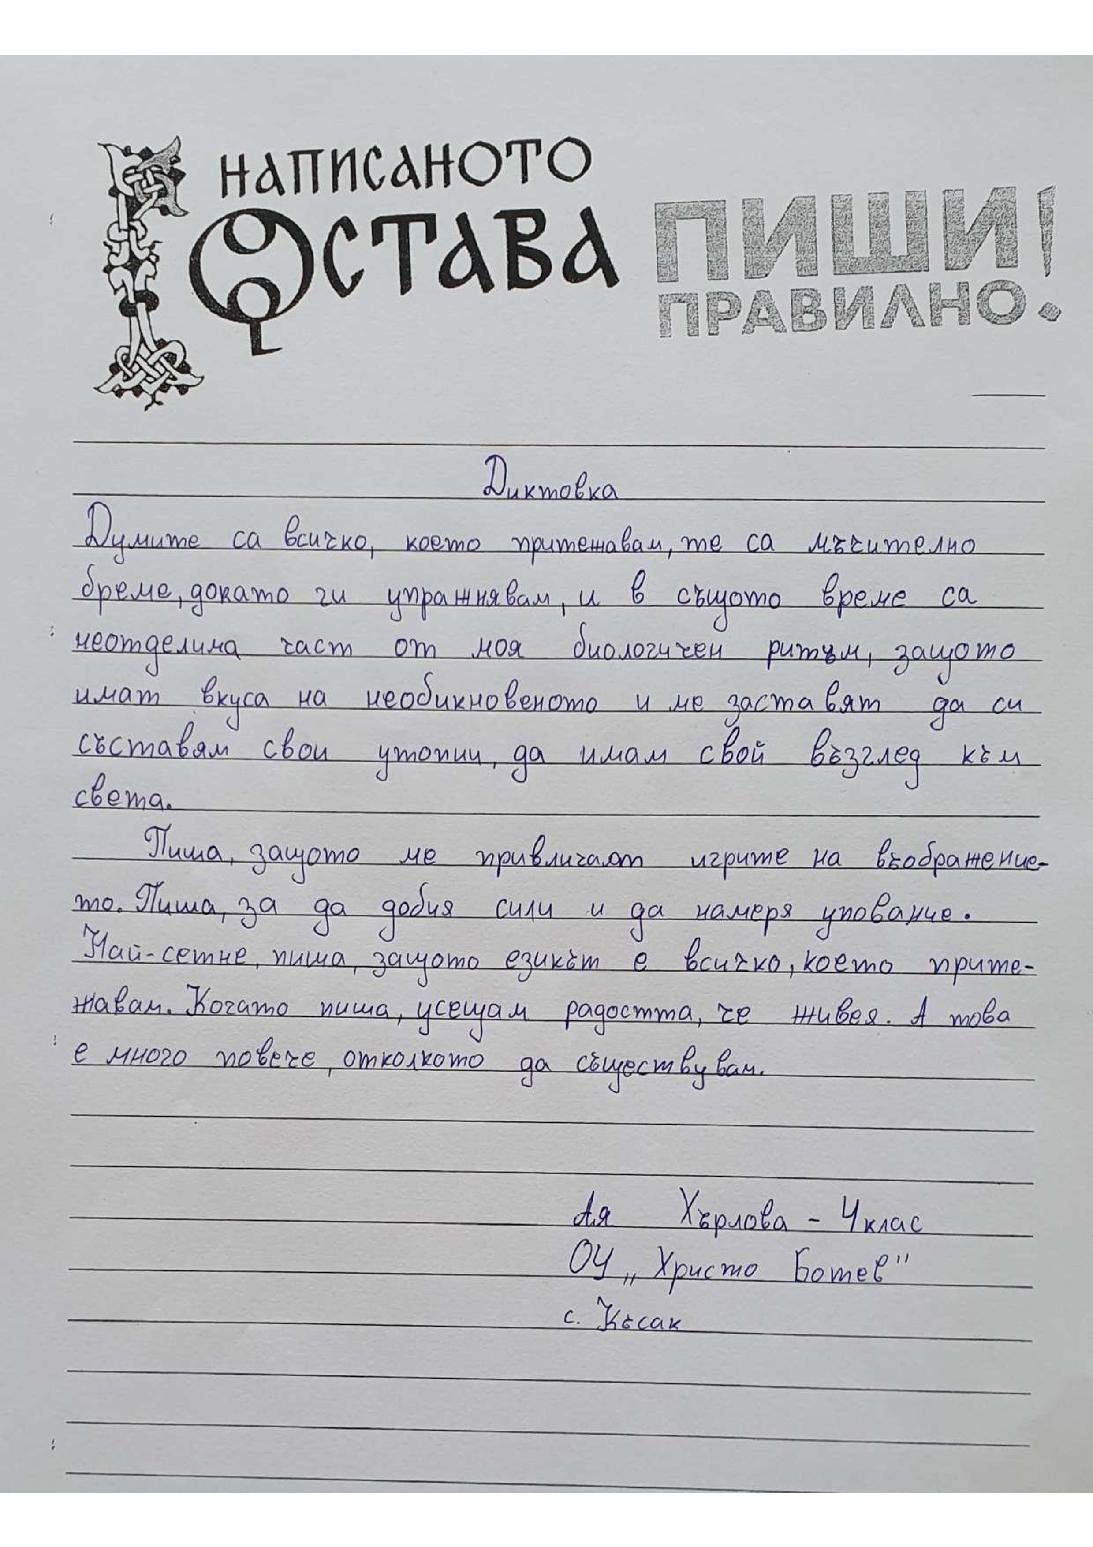 НАПИСАНОТО
ОСТАВА
ПИШИ!
ПРАВИЛНО.
Диктовка
Думите са всичко, което притежавам, те са мъчително
бреме, докато ги упражнявам, и в същото време са
неотделима част от моя биологичен ритъм, защото
имат вкуса на необикновеното и ме заставят да си
съставям свои утопии, да имам свой възглед към
света.
Пиша, защото ме привличат игрите на въображение-
то. Пиша, за да добия сили и да намеря упование.
Най-сетне, пиша, защото езикът е всичко, което прите-
жавам. Когато пиша, усещам радостта, че живея. А това
е много повече, отколкото да съществувам.
Ая Хърлова - 4 клас
ОУ „Христо Ботев"
с. Късак